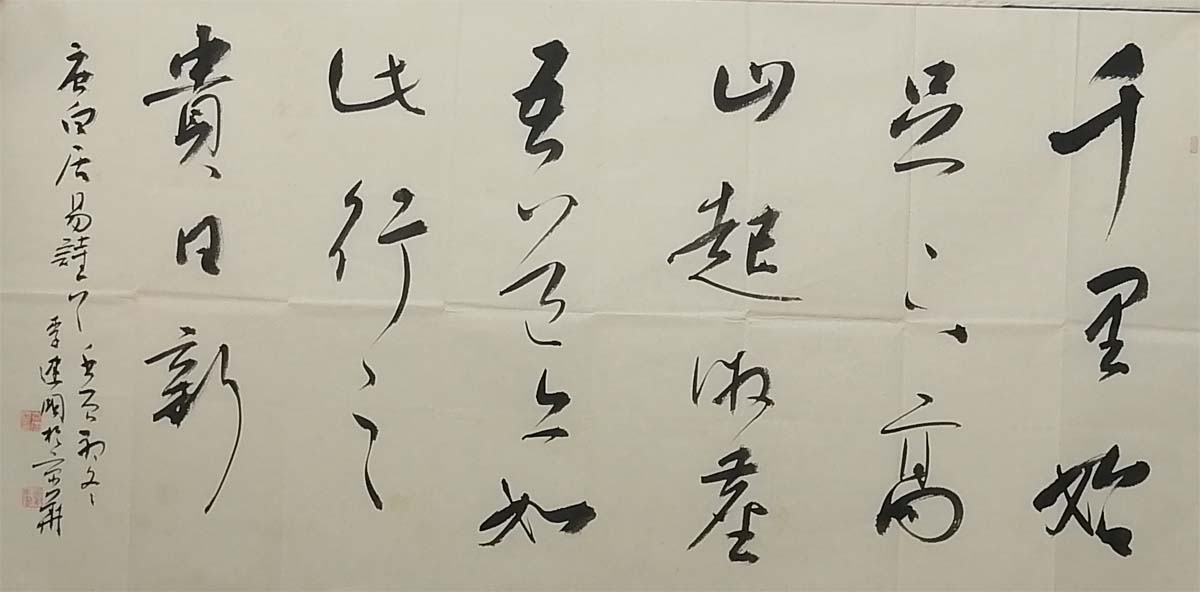 千里始
足下高
山起微塵
吾道亦如
此行之
貴日新
唐白居易詩
壬寅初冬
於京華